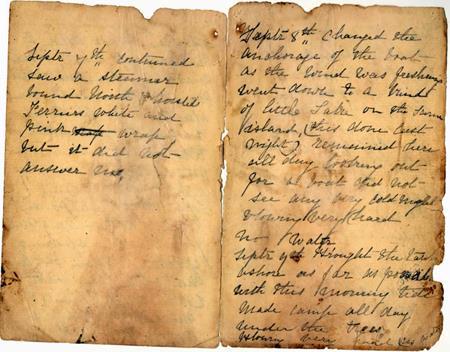 Septr 7th continued
saw a steamer
bound North & hoisted
Ferriers white and
pink wrap
but it did not
answer us,
Septr 8th changed the
anchorage of the boat
as the wind was freshening
went down to a
of little Lake on the same
island, (this done last
night) remained there
all day looking out
for a boat did not
see any very cold night
blowing very hard
no water
Septr 9th brought the tank
ashore as far as possible
with this morning tide
made camp all day
under the trees
blowing very hard